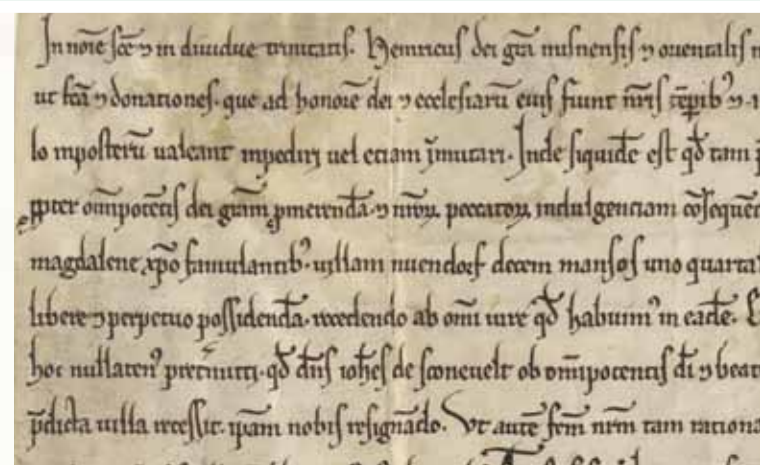 In noīe scē ⁊ in diuidue trinitatis. Henricus dei gr̄a misnensis ⁊ orientalis m
ut fc̄a ⁊ donationes. que ad honorē dei ⁊ ecclesiarū eius fiunt nr̄is tēpibꝰ ⁊
lo inposterū ualeant inpediri uel etiam īmutari. Inde siquidē est qd̄ tam
ꝓpter om̄ipotētis dei gr̄am ꝓmerendā ⁊ nr̄oꝝ peccatoꝝ indulgenciam cōsequēd
magdalene xp̄o famulantibꝰ. uillam nuendorf decem mansos uno quarta
libere ⁊ perpetuo possidendā. recedendo ab om̄i iure qd̄ habuimꝰ in eadē.
hoc nullatenꝰ pretmitti. qd̄ dn̄s ioh̄es de sconeuelt ob om̄ipotentis dī ⁊ beat
p̄dicta uilla recessit. ip̄am nobis resignādo. Vt autē fc̄m nr̄m tam rationa